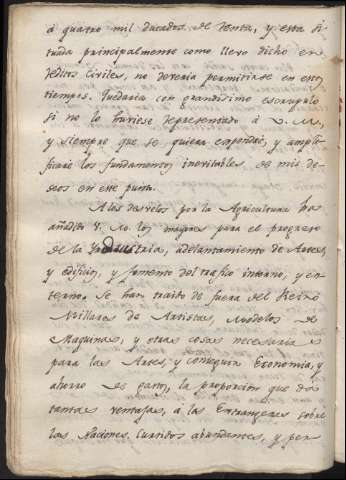 á quatro mil ducados de renta, y esta si
tuada principalmente como llevo dicho en
reditos Civiles, no deveria permitirse en estos
tiempos. Quedaria con grandisimo escrupulo
si no lo huviese representado á V. M.,
y siempre que se quiera expondré, y ampli
ficaré los fundamentos inevitables de mis de
seos en este punto.
A los desvelos por la Agricultura has
añadido V. M. los mayores para el progreso
de la Industria, adelantamiento de Artes,
y edificios, y fomento del trafico interno, y ex
terno. Se han traido de fuera del Reino
Millares de Artistas, Modelos de
Maquinas, y otras cosas necesarias
para las Artes, y conseguir Economia, y
ahorro de gasto, la proporcion que dá
tantas ventajas, á las Extrangeras sobre
las Naciones. Curtidos abundantes, y per